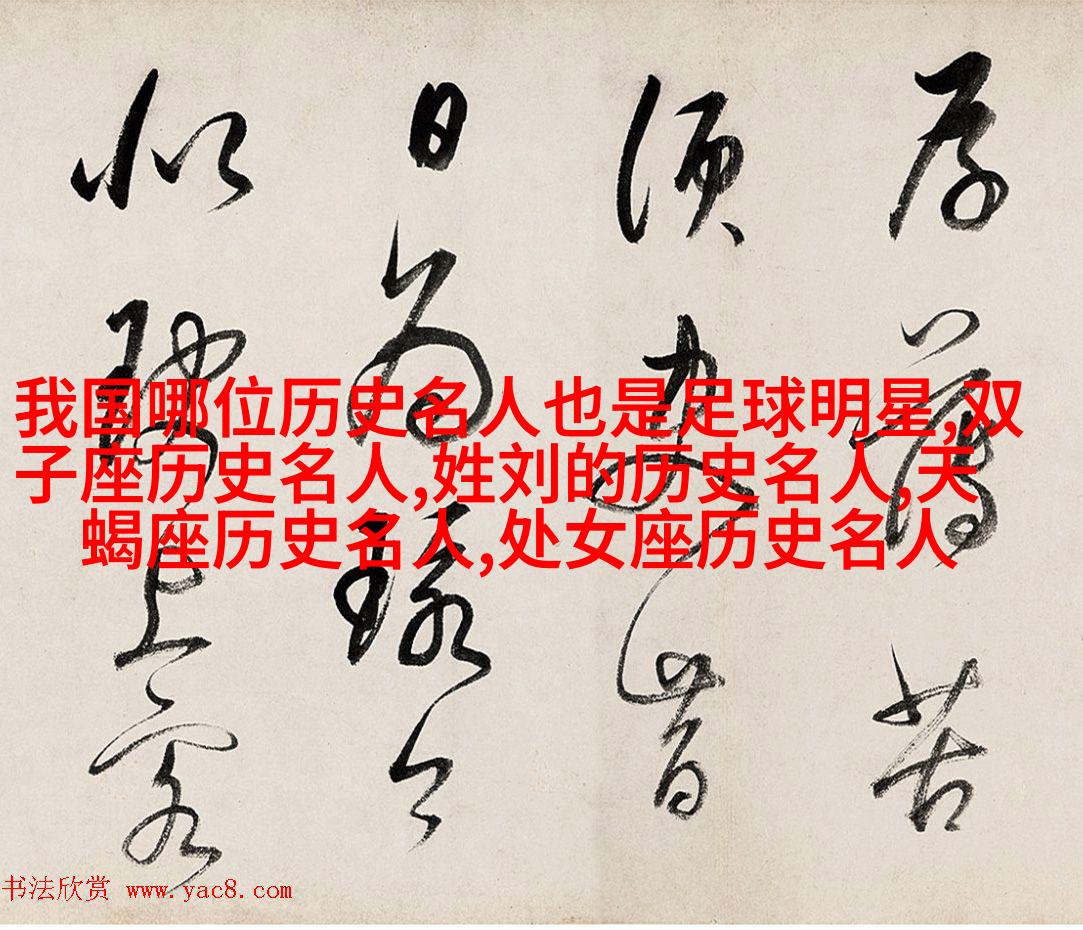 我国哪位历史名人也是足球明星,双
子座历史名人,姓刘的历史名人,天
蝎座历史名人,处女座历史名人
厚薄苦
须
日为
似上客
书法欣赏 www.yac8.com